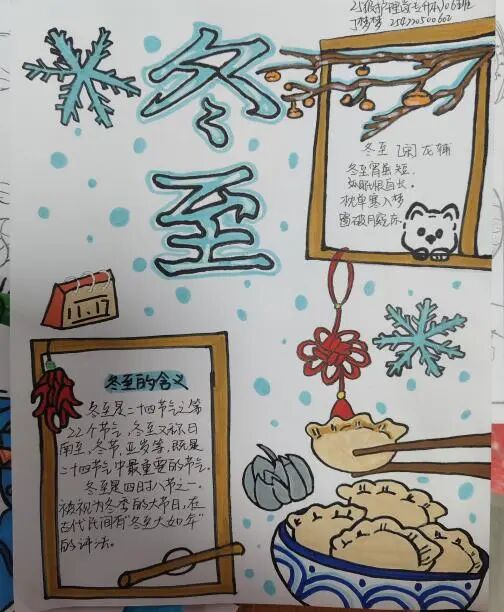 25级护理高专升本)06班
丁梦梦 254770500602
冬至
冬至 [宋] 龙辅
冬至宵虽短,
如眠恨自长。
枕单寒入梦
窗破月窥床
11.17
冬至的含义
冬至是二十四节气之第
22个节气,冬至又称日
南至,冬节,亚岁等,既是
二十四节气中最重要的节气.
冬至是四时八节之一,
被视为冬季的大节日,在
古代民间有"冬至大如年"
的评法。